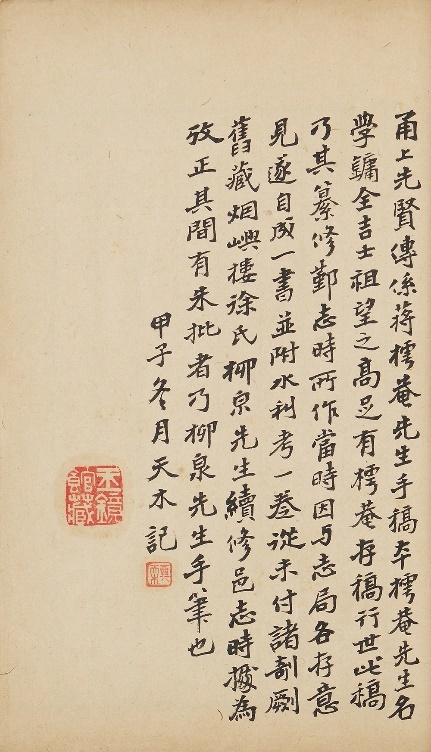 甬上先賢傳係蔣樗菴先生手稿本樗菴先生名
學鏞全吉士祖望之高足有樗菴存稿行世此稿
乃其纂修鄞志時所作當時因与志局各存意
見遂自成一書並附水利考一卷從未付諸剞劂
舊藏烟嶼樓徐氏柳泉先生續修邑志時據為
攷正其間有朱批者乃柳泉先生手筆也
甲子冬月天木記
鏡館藏